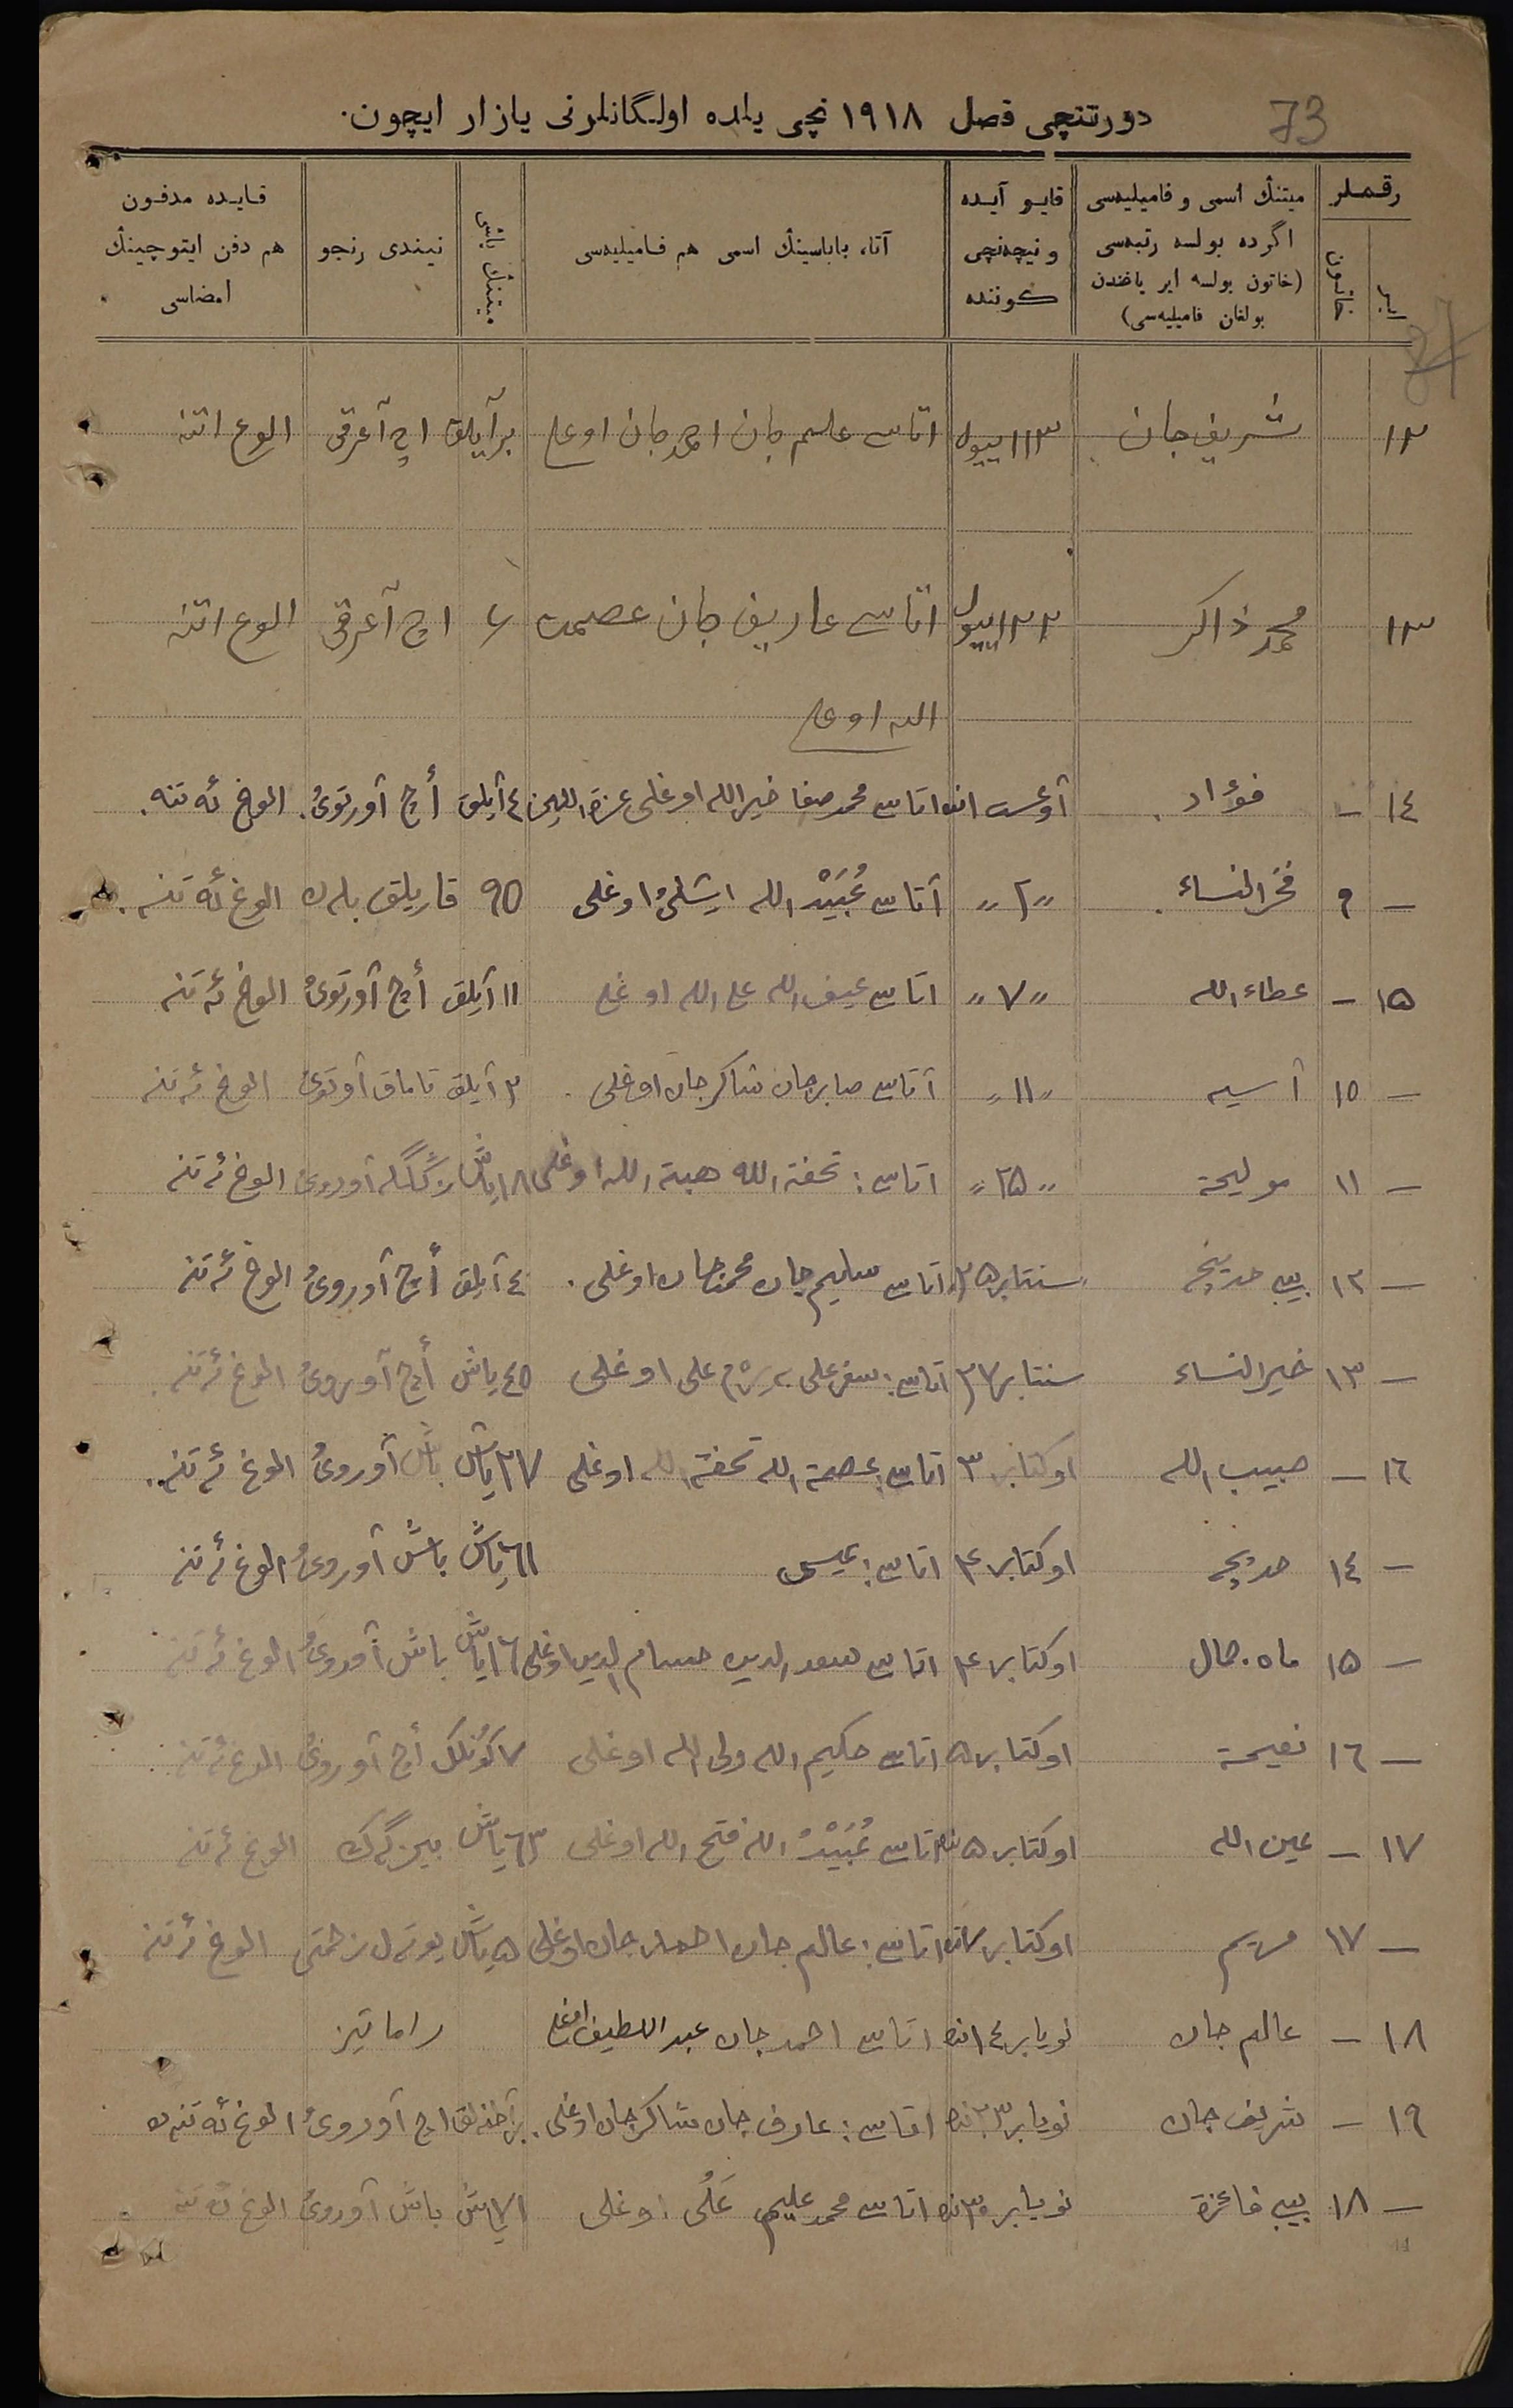 73
دورتنچی فصل ١٩١٨ نچی یلده اولگانلرنی یازار ایچون.
رقملر
ایر
خاتون
میتنڭ اسمی و فامیلیەسی اگرده بولسه رتبەسی (خاتون بولسه ایر یاغندن بولغان فامیلیەسی)
قایو آیده و نیچەنچی كوننده
آتا، باباسینڭ اسمی هم فامیلیەسی
میتنڭ یاشی
نیندی رنجو
قایده مدفون هم دفن ایتوچینڭ امضاسی
١٢ شریف جان ١١٣ ییول اتاسی علیم جان احمدجان اوغلی بر آیلق اچ آغرقی الوغ اتنه
١٣ محمد ذاكر ١٢٢ ییول اتاسی عاریف جان عصمت ٤ اچ آغرقی الوغ اتنه
الله اوغلی
١٤ – فؤاد آوغست اتاسی محمد صفا خیرالله اوغلی عزة اللهین ٤ آیلق أچ آورتوئ. الوغ ئه تنه.
– ٩ فخرالنساء. „٢„ آتاسی عُبَیْد الله ایشلئ اوغلی ٩٥ قاریلق بلەن الوغ ئه تنه.
١٥ – عطاءالله „٧„ اتاسی الله علی الله اوغلی ١١ آیلق أچ آورتوئ الوغ ئه تنه
– ١٠ آسیه „١١„ آتاسی صابرجان شاكرجان اوغلی. ٣ آیلق تاماق آورتوئ الوغ ئه تنه
– ١١ مولیحة „٢٥„ اتاسی: تحفة الله هبة الله اوغلی ١٨ یاش آوروئ الوغ ئه تنه
– ١٢ بیبی خدیجه سنتابر ٢٥ اتاسی سلیم جان محمدجان اوغلی. ٤ آیلق أچ آوروئ الوغ ئه تنه
– ١٣ خیرالنساء سنتابر ٢٧ اتاسی: سفرعلی علی اوغلی ٤٥ یاش أچ آوروئ الوغ ئه تنه.
١٦ – حبیب الله اوكتابر ٣ اتاسی: عصمة الله تحفة الله اوغلی ٢٧ یاش باش آوروئ الوغ ئه تنه.
– ١٤ خدیجه اوكتابر ٤ اتاسی: عیسی ٦١ یاش باش آوروئ الوغ ئه تنه
– ١٥ ماه جمال اوكتابر ٤ اتاسی سعد الدین حسام الدین اوغلی ١٦ یاش باش آوروئ الوغ ئه تنه
– ١٦ نعیمة اوكتابر ٥ اتاسی حكیم الله ولی الله اوغلی ٧ كونلك أچ آوروئ الوغ ئه تنه
١٧ – عین الله اوكتابر ٥ نده اتاسی عُبَیْدُ الله فتح الله اوغلی ٦٣ یاش بیزگەك الوغ ئه تنه
– ١٧ مریم اوكتابر ٧ نده اتاسی: عالم جان احمد جان اوغلی ٥ یاش یوتەل زحمتی الوغ ئه تنه
١٨ – عالم جان نویابر ١٤ نده اتاسی احمد جان عبد اللطیف اوغلی راماتیز
١٩ – شریف جان نویابر ٢٣ نده اتاسی: عارف جان شاكر جان اوغلی. بر آطنەلق اچ آوروئ الوغ ئه تنەده
– ١٨ بیبی فائزة نویابر ٣٠ نده اتاسی محمد علیم عَلی اوغلی ٧١ یاش باش آوروئ الوغ ئه تنه